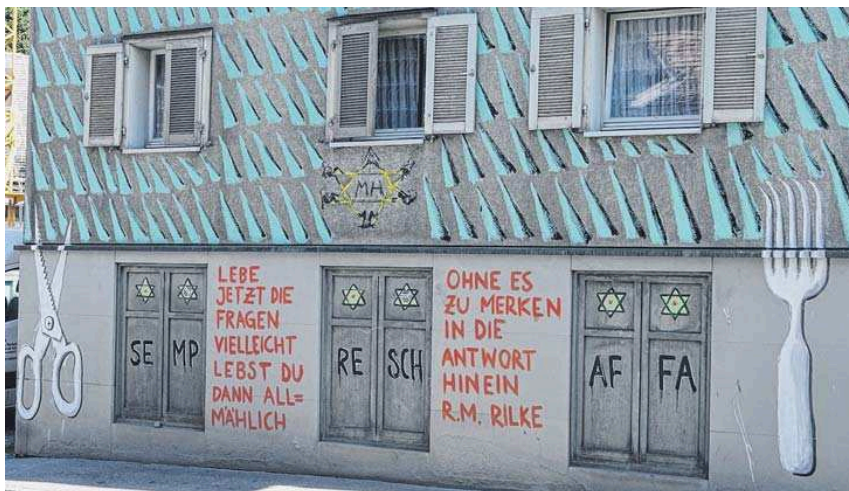 MH
LEBE
JETZT DIE
FRAGEN
VIELLEICHT
LEBST DU
DANN ALL=
MÄHLICH
OHNE ES
ZU MERKEN
IN DIE
ANTWORT
HINEIN
R.M. RILKE
SE MP
RE SCH
AF FA